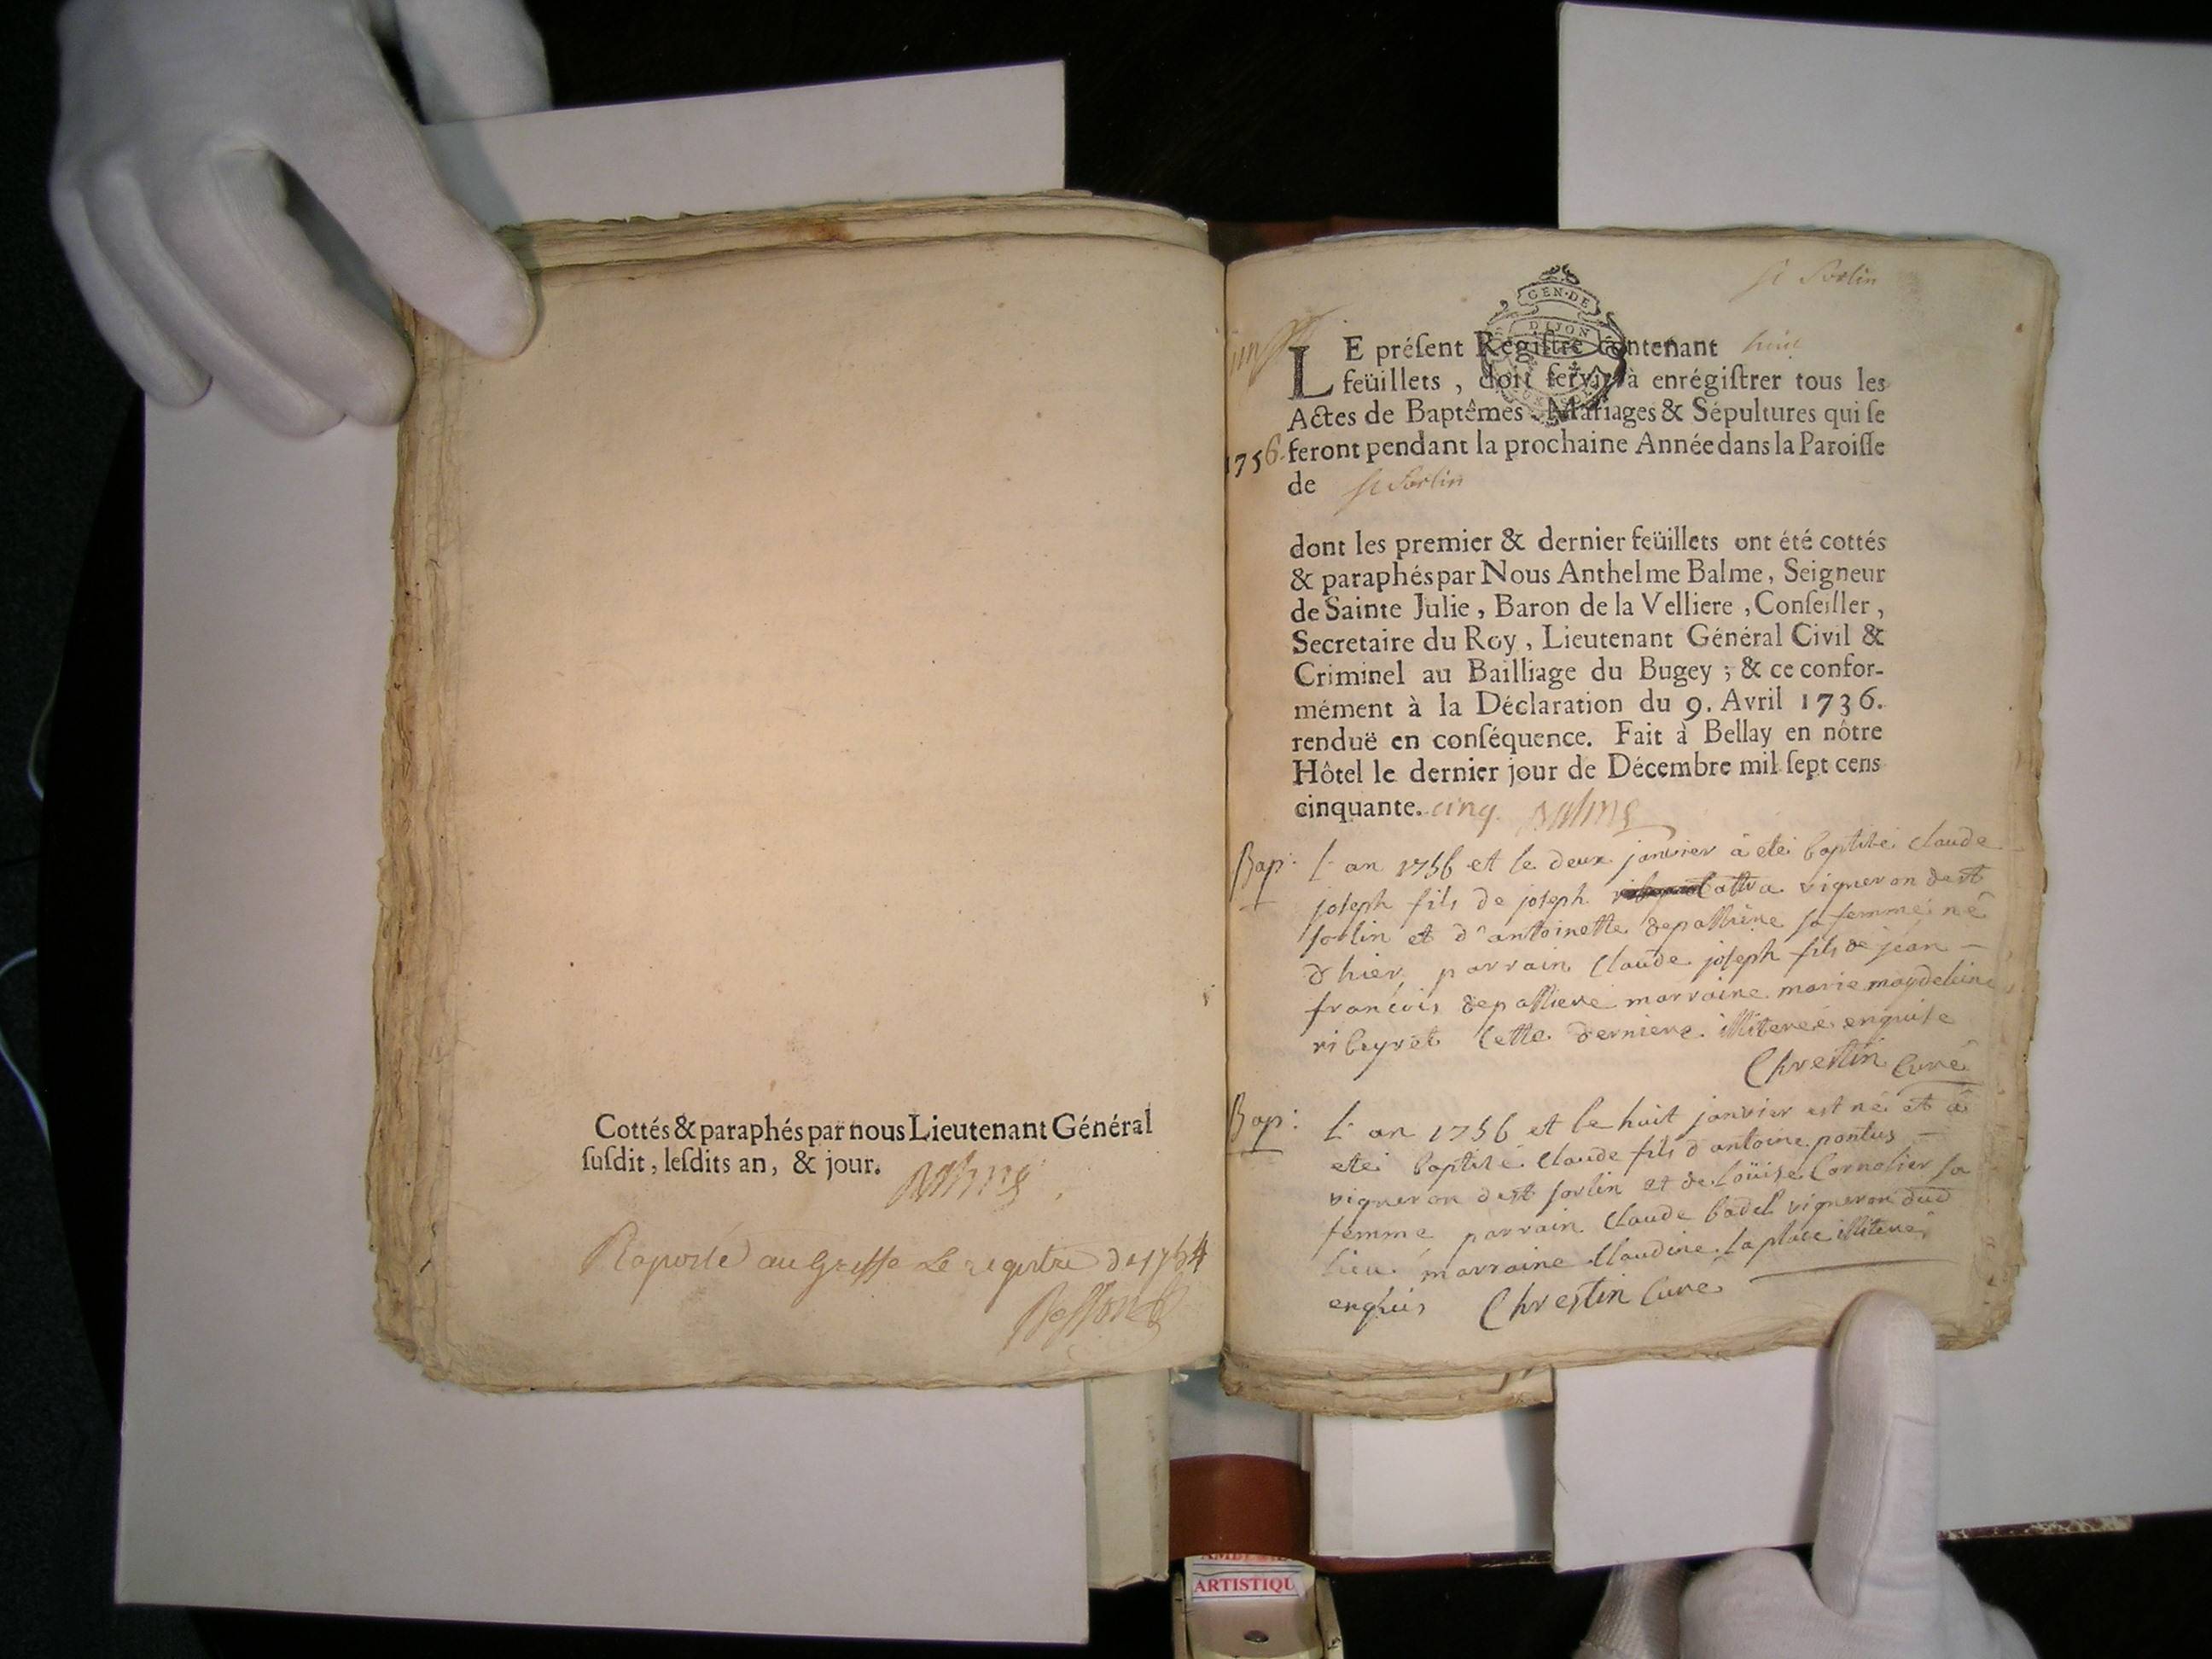 Cottés & paraphés par nous Lieutenant Général
suſdit, leſdits an, & jour. Balme
Raporté au Greffe Le registre de 1754
st Sorlin
GEN·DE
DIJON
LE préſent Regiſtre contenant huit
feüillets, doit ſervir à enrégiſtrer tous les
Actes de Baptêmes, Mariages & Sépultures qui ſe
1756. feront pendant la prochaine Année dans la Paroiſſe
de st Sorlin
dont les premier & dernier feüillets ont été cottés
& paraphés par Nous Anthelme Balme, Seigneur
de Sainte Julie, Baron de la Velliere, Conſeiller,
Secretaire du Roy, Lieutenant Général Civil &
Criminel au Bailliage du Bugey; & ce confor-
mément à la Déclaration du 9. Avril 1736.
renduë en conſéquence. Fait à Bellay en nôtre
Hôtel le dernier jour de Décembre mil ſept cens
cinquante. cinq. Balme
Bap: L'an 1756 et le deux janvier à eté baptisé claude
joseph fils de joseph vigneron de st
sorlin et d'antoinette depalliere sa femme né
d'hier, parrain Claude joseph fils de jean
françois depalliere marraine marie magdeleine
ribeyret cette derniere illiterée enquise
Chrestin Curé
Bap: L'an 1756 et le huit janvier est né et à
eté baptisé Claude fils d'antoine pontus
vigneron de st sorlin et de Loüise Cornolier sa
femme parrain Claude badel vigneron dud
lieu marraine Claudine laplace illiterés
enquis Chrestin Curé
ARTISTIQU